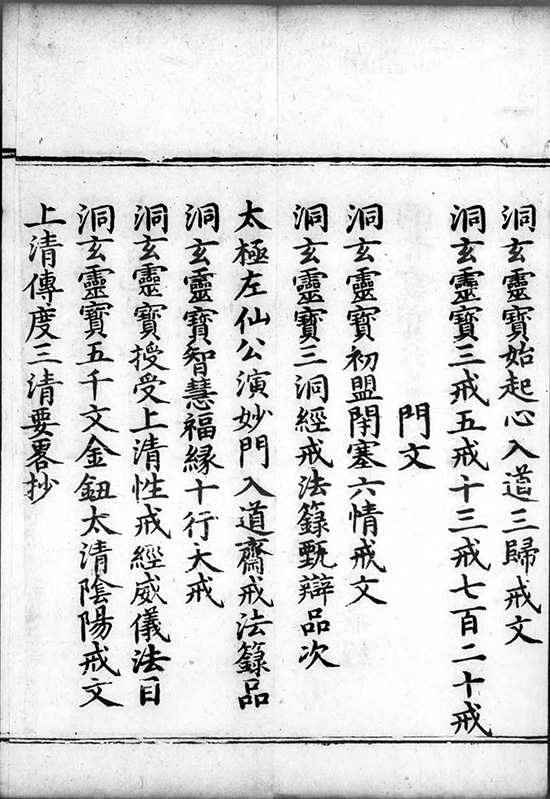 洞玄靈寶始起心入道三歸戒文
洞玄靈寶三戒五戒十三戒七百二十戒
門文
洞玄靈寶初盟閇塞六情戒文
洞玄靈寶三洞經戒法籙甄辯品次
太極左仙公演妙門入道齋戒法籙品
洞玄靈寶智慧福縁十行大戒
洞玄靈寶授受上清性戒經威儀法目
洞玄靈寶五千文金鈕太清陰陽戒文
上清傳度三清要畧抄